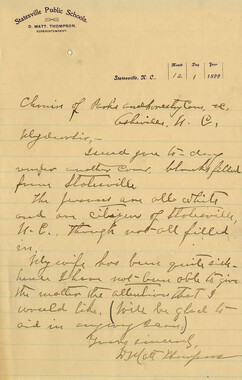 Statesville Public Schools.
D. MATT. THOMPSON,
SUPERINTENDENT.
Month Day Year
Statesville, N. C., 12 1 1899
Chmn of Parks and Forestry Com, &c,
Asheville, N. C,
My dear Sir,—
I send you to-day
under another cover, blanks filled
from Statesville.
The persons are all white
and are citizens of Statesville,
N. C., though not all filled
in.
My wife has been quite sick
hence I have not been able to give
the matter the attention that I
would like. (We'll be glad to
aid in any way I can.)
Yours sincerely,
D. Matt Thompson